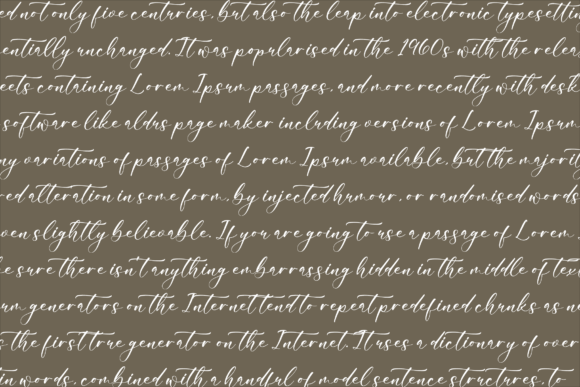 ed not only five centuries, but also the leap into electronic typesettin
entially unchanged. It was popularised in the 1960s with the relea
eets containing Lorem Ipsum passages, and more recently with desk
software like aldus page maker including versions of Lorem Ipsum
ny variations of passages of Lorem Ipsum available, but the majorit
red alteration in some form, by injected humour, or randomised words
ven slightly believable. If you are going to use a passage of Lorem
be sure there isn't anything embarrassing hidden in the middle of text
um generators on the Internet tend to repeat predefined chunks as n
s the first true generator on the Internet. It uses a dictionary of over
tin words, combined with a handful of model sentence structures, to